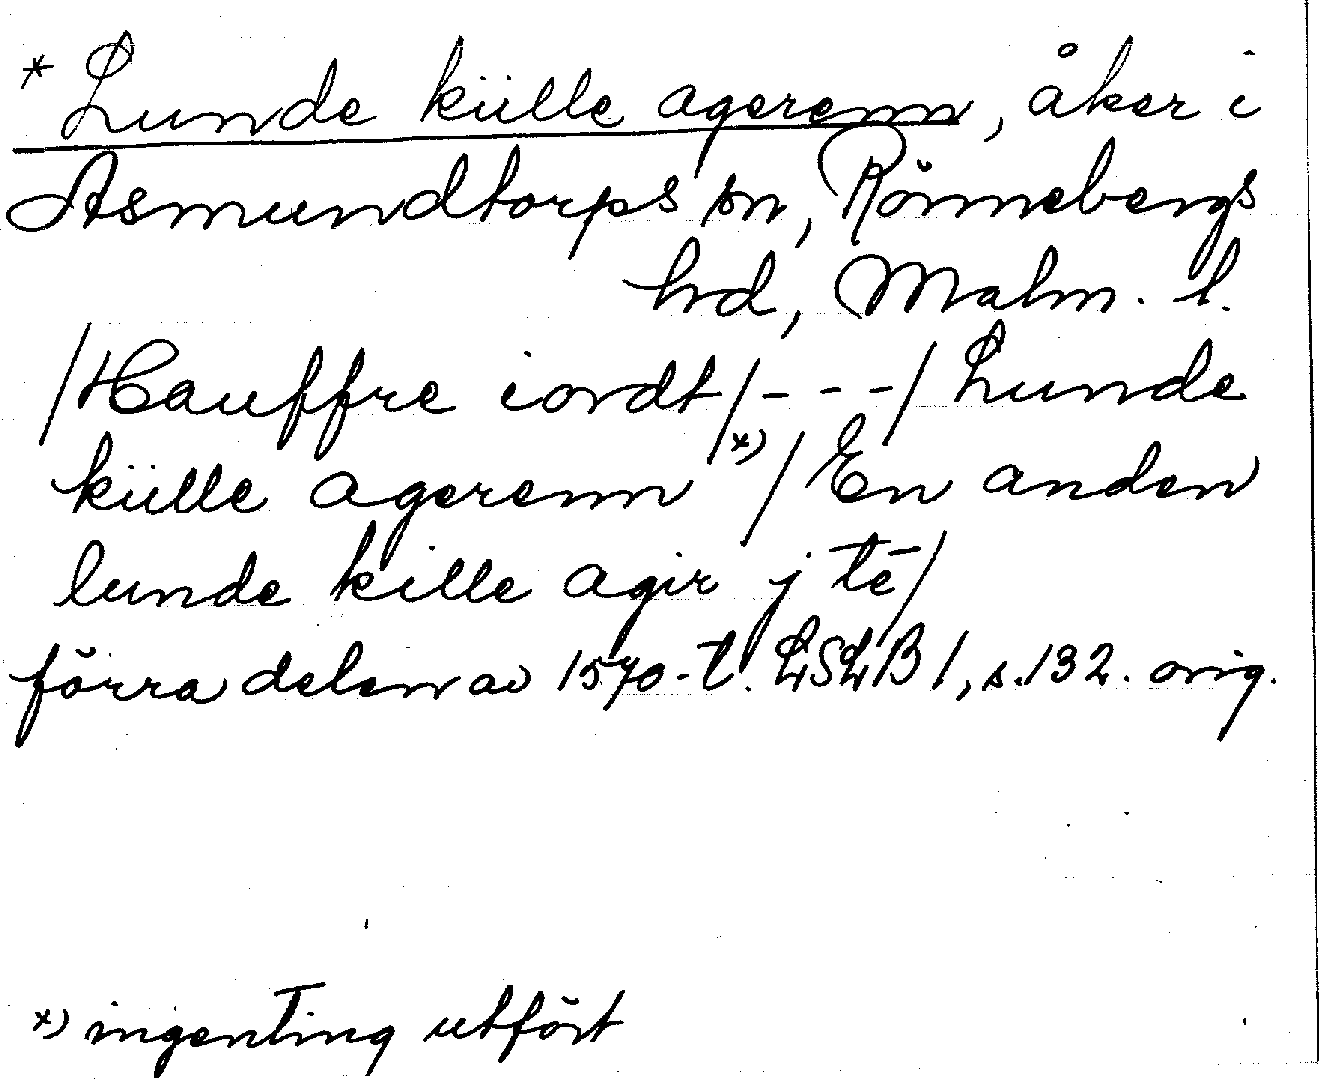 * Lunde külle agerenn, åker i
Asmundtorps sn, Rönnebergs
hrd, Malm. l.
/Hauffre iordt/- - -/ Lunde
külle agerenn *) / En anden
lunde kille agir j tē/
förra delen av 1570-t. LSLB 1, s. 132. orig.
*) ingenting utfört